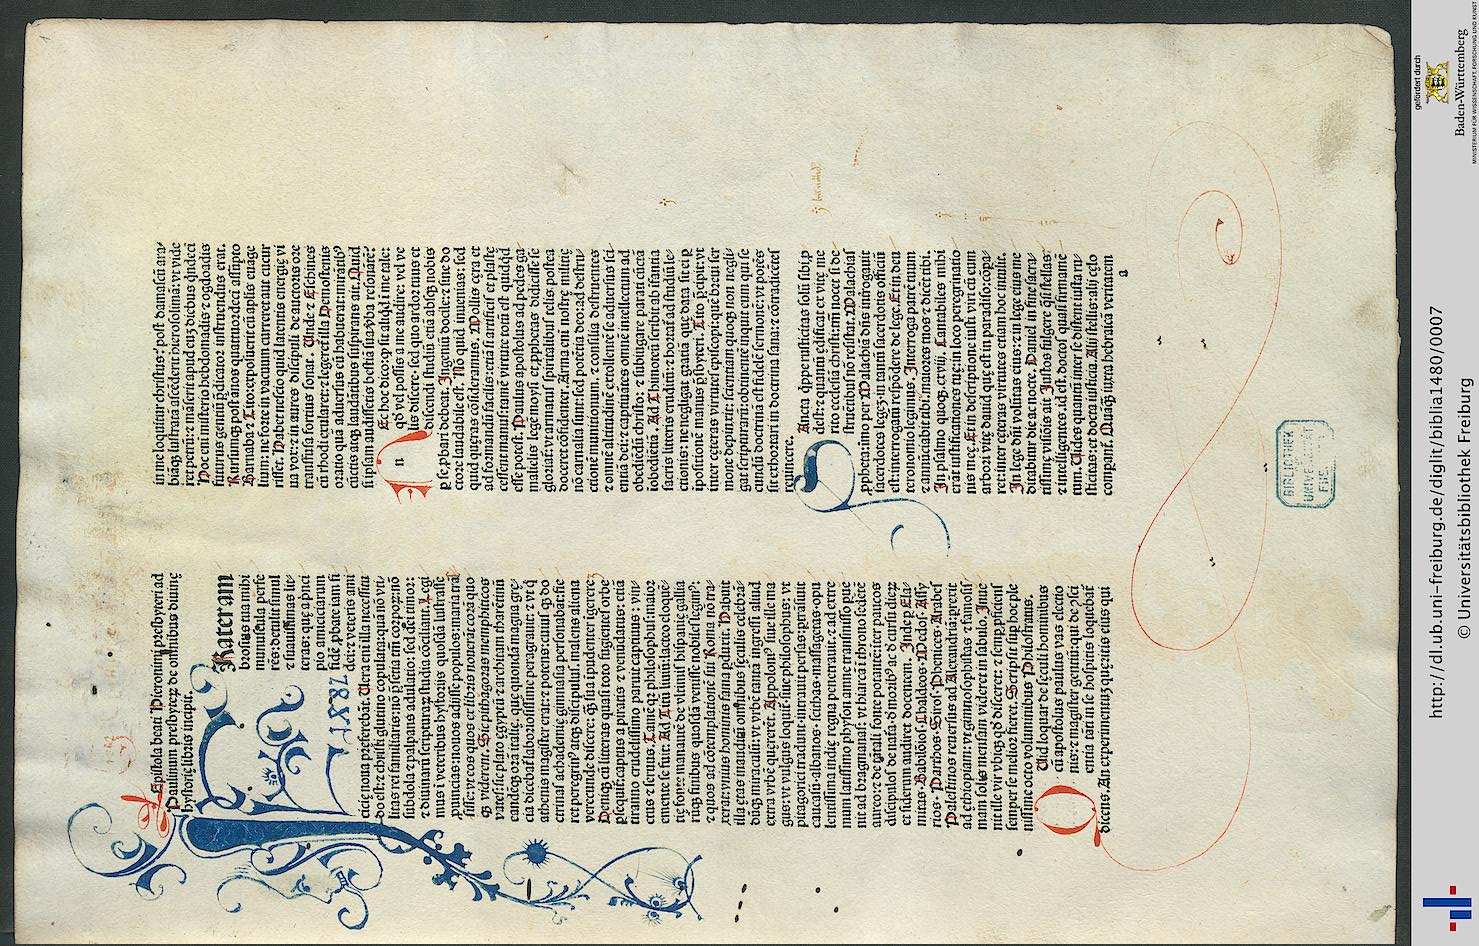 Epistola beati Hieronimi presbyteri ad
Paulinum presbyterum de omnibus divine
hystorie libris incipit.
Frater am
brosius tua mihi
munuscula perfe
rens: detulit simul
et suavissimas litte
ras: que a prici
pio amiciciarum
fidē pbate iam fi
dei: et veteris ami
cicie noua pferebāt. Uera eni illa necessitu
do est: et christi glutino copulata: quā nō vti
litas rei familiaris: nō pñtia tm̄ corpoꝝ: nō
subdola et palpans adulatio: sed dei timor:
et diuinarū scripturaꝝ studia cōciliant. Legi
mus i veteribus hystoriis quosdā lustrasse
puincias: nouos adiisse populos: maria trā
sisse: vt eos quos ex libris nouerāt: corā quo
qꝫ viderent. Sic pithagoras memphiticos
vates: sic plato egyptū et architam tharētinū
eandēqꝫ orā italie. que quondā magna gre
cia dicebat laboriosissime peragrauit: et vt q̄
athenis magister erat: et potens: cuius qꝫ do
ctrinas achademie gimnasia personabāt: fie
ret peregrin⁹ atqꝫ discipulus: malens aliena
verecunde discere: q̄ sua ipudenter igerere.
Deniqꝫ cū litteras quasi toto fugientes orbe
psequit: captus a piratis et venūdatus: etiā
tiranno crudelissimo paruit captiuus: vin
ctus et seruus. Tamē qꝫ philosophus: maior
emente se fuit. Ad Titū liuiū lacteo eloquē
tie fonte manantē de vltimis hispanie gallia
rūqꝫ finibus quosdā venisse nobiles legim⁹:
et quos ad cōtemplationē sui Roma nō tra
xerat: vnius hominis fama pduxit. Habuit
illa etas inauditū omnibus seculis celebrā
dūqꝫ miraculū: vt vrbē tantā ingressi aliud
extra vrbē quererēt. Appoloni⁹ siue ille ma
gus: vt vulgus loquit siue philosophus: vt
pitagorici tradunt: intrauit persas: ptrāsiuit
caucasū: albanos: scithas: massagetas: opu
lentissima indie regna penetrauit: et ad extre
mum latissimo physon amne transmisso pue
nit ad bragmanas: vt hiarcā i throno sedētē
aureo: et de tātali fonte potantē: inter paucos
discipulos de natā: de moribꝰ ac de cursu dieꝝ
et siderum audiret docentem. Inde p Ela
mitas. Babilōios. Chaldeos. Medos. Assy
rios. Parthos. Siros. Phenices. Arabes
Palestinos reuersus ad Alexandriā: prexit
ad ethiopiam: vt gimnosophistas et famosissi
mam solis mensam videret in sabulo. Inue
nit ille vir vbiqꝫ qd̄ disceret: et semp pficiens
semper se melior fieret. Scripsit sup hoc ple
nissime octo voluminibus Philostratus.
Quid loquar de seculi hominibus
cū apostolus paulus vas electio
nis: et magister gentiū: qui de cōsci
entia tāti in se hospitis loquebat
dicens. An experimentum queritis eius qui
in me loquitur christus: post damascū ara
biāqꝫ lustratā ascēderit hierosolimā: vt vide
ret petrū: et māserit apud eū ꝫ diebus quīdeci
Hoc eni misterio hebdomadis et ogdoadis
futurus gentiū pdicator instruendus erat.
Rursumqꝫ post ānos quatuordeci assūpto
Barnaba et Tito exposuerit cū aplis euāge
lium: ne forte in vacuum curreret aut cucur
risset. Habet nescio quid latentis energie vi
ua vox: et in aures discipuli de auctoris ore
transfusa fortius sonat. Unde et Eschines
cū rhodi exularet: et legeretur illa Demostenis
oratio quā aduersus eū habuerat: mirātibꝰ
cūctis atqꝫ laudātibus suspirans ait. Quid
si ipsam audissetis bestiā sua ꝟba resonāte:
Nec hoc dico qꝫ sit aliqd i me tale:
qd̄ vel possis a me audire: vel ve
lis discere: sed quo ardor tuus et
discendi studiū etiā absqꝫ nobis
p se pbari debeat. Ingeniū docile: et sine do
ctore laudabile est. Nō quid inuenias: sed
quid queras cōsideramus. Mollis cera et
ad formandū facilis: etiā si artificis et plaste
cessent manus: tamē virtute totū est quicqd
esse potest. Paulus apostolus ad pedes ga
malielis lege moysi et prophetas didicisse se
gloriat: vt armatus spiritalibus telis: postea
doceret cōfidenter. Arma eni nostre militie
nō carnalia sunt: sed potētia deo: ad destru
ctionē munitionum. et consilia destruentes
et omnē altitudinē extollentē se aduersus sci
entiā dei: et captiuātes omnē intellectum ad
obediēdū christo: et subiugare parati cūctā
iobediētiā. Ad Thimoteū scribit ab ifantia
sacris litteris eruditū: et hortat ad studiū le
ctionis: ne negligat gratiā que data sit ei p
ipositionē manus pbyteri. Tito pcipit: vt
inter ceteras virtutes episcopi: quē breui ser
mone depinxit: scientiam quoqꝫ non negli
gat scripturarū: obtinentē inquit eum qui se
cundū doctrinā est fidelē sermonē: vt potēs
sit exhortari in doctrina sana: et cōtradicētes
reuincere.
Sancta q̄ppe rusticitas solū sibi p
dest: et quantū edificat ex vite me
rito ecclesiā christi: tm̄ nocet si de
struētibus nō resistat. Malachias
propheta: imo per Malachiā dn̄s uir̄rogauit
sacerdotes legeꝫ. in tantū sacerdotis officiū
est: interrogatū respōdere de lege. Et in deu
teronomio legimus. Interroga patrē tuum
et annūciabit tibi: maiores tuos et dicēt tibi.
In psalmo quoqꝫ. cxviij. Cantabiles mihi
erāt iustificationes tue: in loco peregrinatio
nis mee. Et in descriptione iusti viri cū eum
arbori vite dauid que est in paradiso: cōpa
ret: inter ceteras virtutes etiam hoc intulit.
In lege dn̄i voluntas eius: et in lege eius me
ditabitur die ac nocte. Daniel in fine sacra
tissime visiōis ait. Iustos fulgere q̄si stellas:
et intelligentes. id est. doctos quasi firmamē
tum. Uides quantū inter se distent iusta ru
sticitas: et docta iusticia. Alij stellis: alij celo
comparant. Quāqꝫ iuxta hebraicā veritatem
a
BIBLIOTHEK
UNIVERSITÄT
http://dl.ub.uni-freiburg.de/diglit/bibla1480/0007
© Universitätsbibliothek Freiburg
gefördert durch
Baden-Württemberg
MINISTERIUM FÜR WISSENSCHAFT, FORSCHUNG UND KUNST